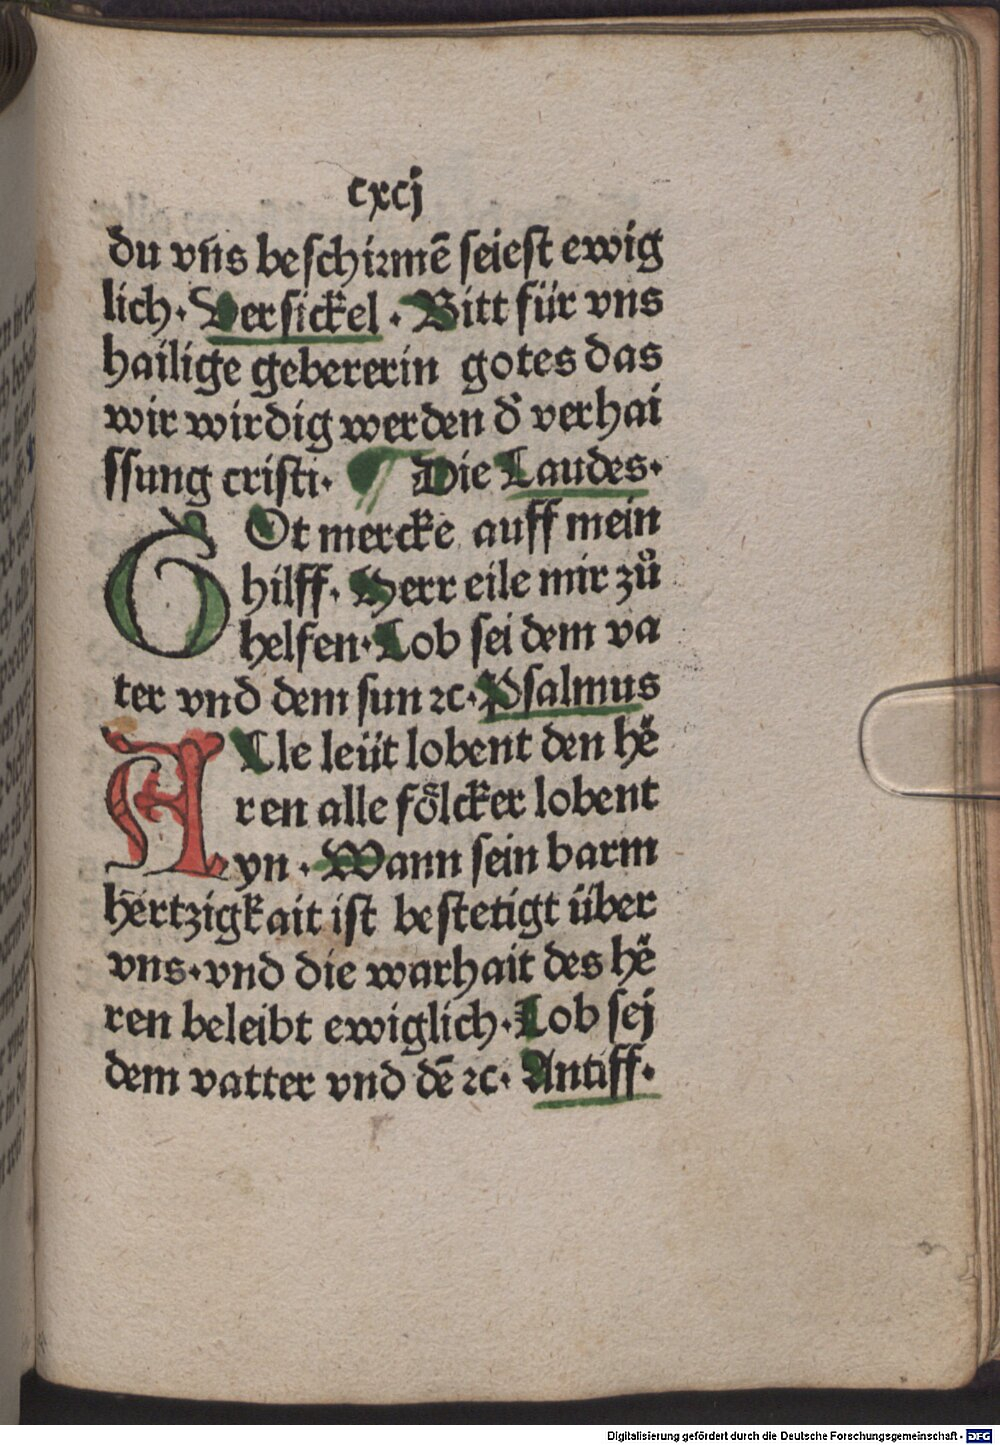 cxcj
du vn̄s beschirmē seiest ewig
lich · Versickel · Bitt für vns
hailige gebererin gotes das
wir wirdig werden d᷑ verhai
ssung cristi · ¶ Die Laudes ·
GOt mercke auff mein
hilff · Herr eile mir zů
helfen · Lob sei dem va
ter vnd dem sun ꝛc · Psalmus
ALle leüt lobent den hë
ren alle fo᷑lcker lobent
yn · Wann sein barm
hërtzigkait ist bestetigt über
vns · vnd die warhait des hë
ren beleibt ewiglich · Lob sej
dem vatter vnd dē ꝛc · Antiff ·
Digitalisierung gefördert durch die Deutsche Forschungsgemeinschaft - DFG